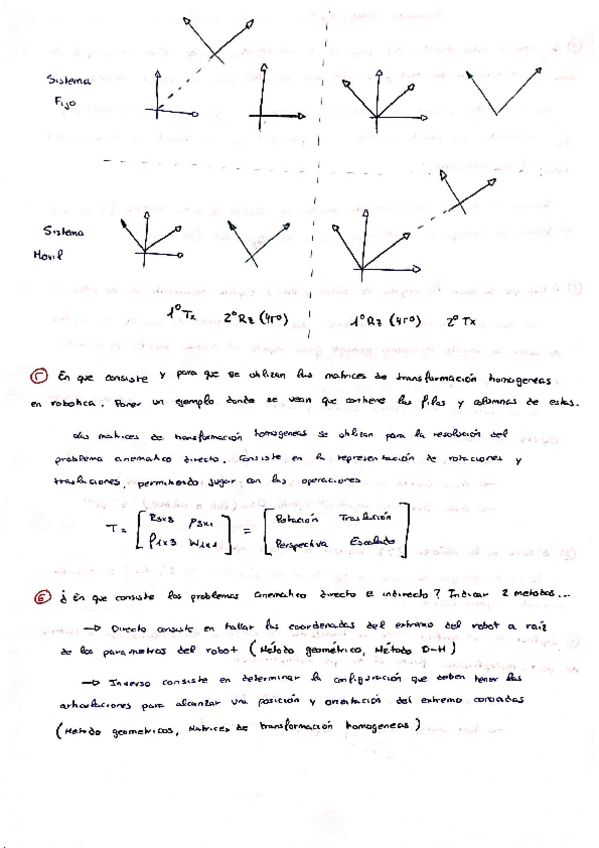 Sistema
Fijo
Sistema
Movil
1º Tx 2º Rz (45º) 1º Rz (45º) 2º Tx
5 En que consiste y para que se utilizan las matrices de transformación homogeneas
en robotica. Poner un ejemplo donde se vean que contiene las filas y columnas de estas.
Las matrices de transformación homogeneas se utilizan para la resolución del
problema cinematico directo. Consiste en la representación de rotaciones y
traslaciones, permitiendo jugar con las operaciones
T = [ R3x3 P3x1 ] = [ Rotación Traslación ]
[ P1x3 W1x1 ] [ Perspectiva Escalado ]
6 ¿En que consiste los problemas cinematico directo e indirecto? Indicar 2 metodos...
→ Directo consiste en hallar las coordenadas del extremo del robot a raiz
de los parametros del robot (Método geométrico, Método D-H)
→ Inverso consiste en determinar la configuración que deben tener las
articulaciones para alcanzar una posición y orientación del extremo conocidas
(Metodo geometricos, Matrices de transformación homogeneas)